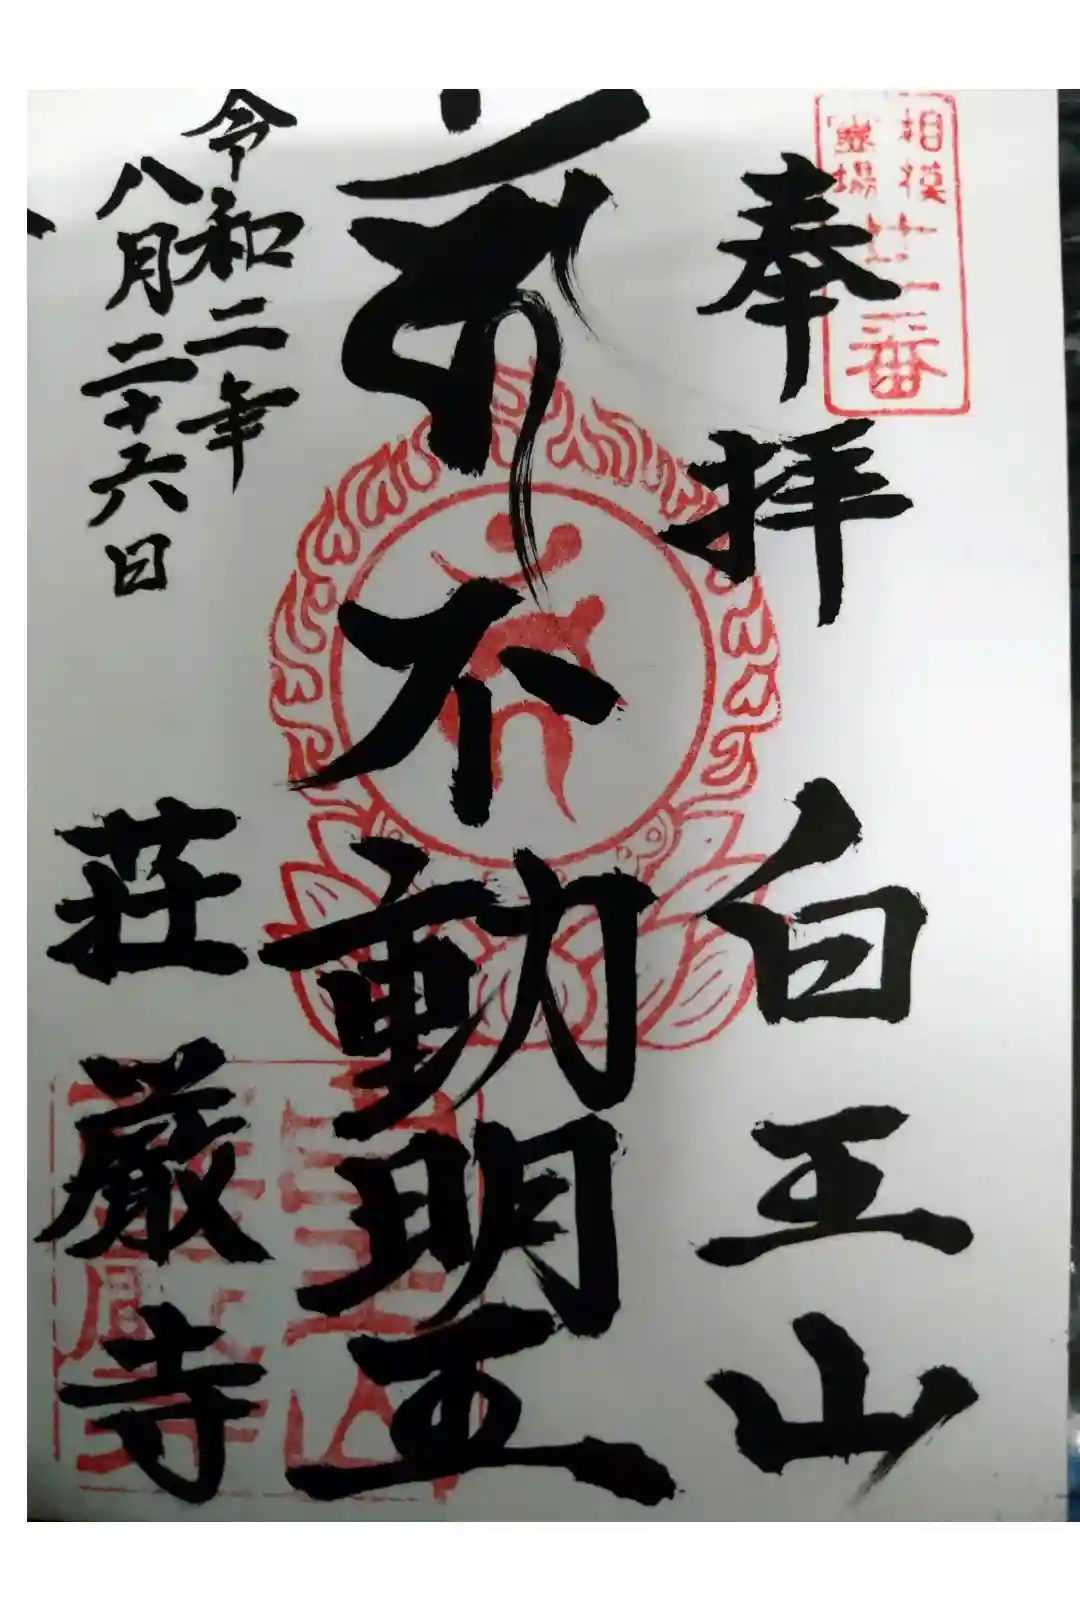 相模
霊場
廿一番
奉拝 白王山
不動明王
令和二年
八月二十六日
荘厳寺